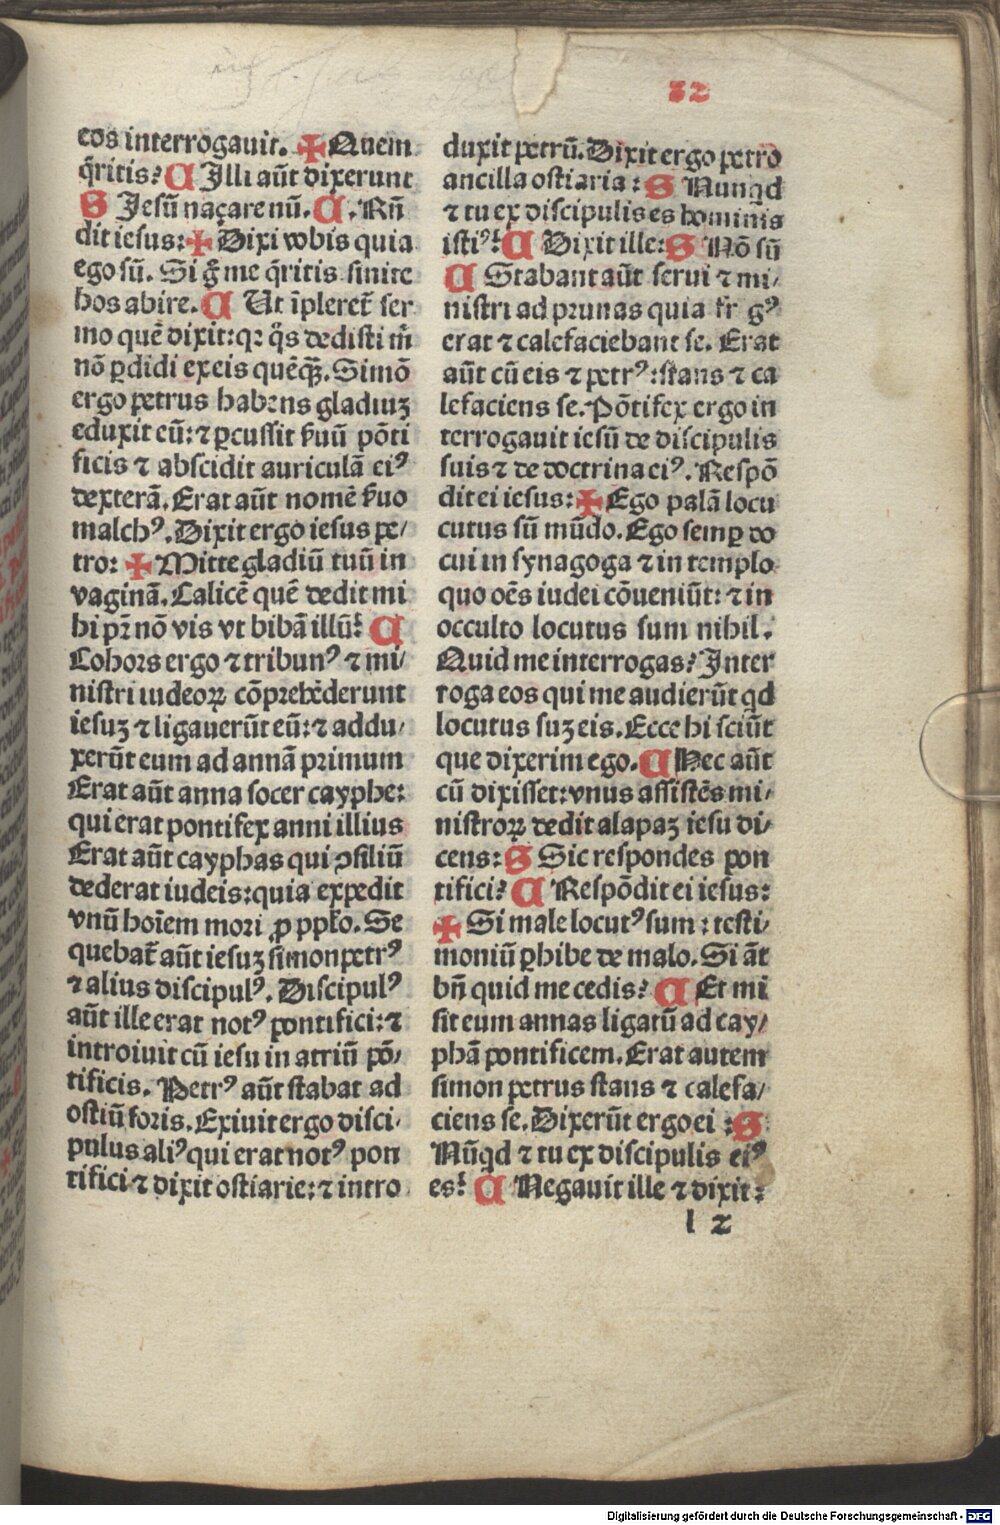 32
eos interrogauit. ✠ Quem
q̄ritis? C Illi aūt dixerunt
S Jesū naçarenū. C. Rn̄
dit iesus: ✠ Dixi vobis quia
ego sū. Si g̊ me q̄ritis sinite
hos abire. C Ut īpleret̄ ser
mo quē dixit: qꝛ q̄s dedisti m̄
nō ꝑdidi ex eis quēq̄ꝫ. Simō
ergo petrus habens gladiuꝫ
eduxit eū: ⁊ ꝑcussit ẜuū pōti
ficis ⁊ abscidit auriculā eiꝰ
dexterā. Erat aūt nomē ẜuo
malchꝰ. Dixit ergo iesus pe/
tro: ✠ Mitte gladiū tuū in
vaginā. Calicē quē dedit mi
hi pr̄ nō vis vt bibā illū? C
Cohors ergo ⁊ tribunꝰ ⁊ mi/
nistri iudeoꝝ cōprehēderunt
iesuꝫ ⁊ ligauerūt eū: ⁊ addu/
xerūt eum ad annā primum
Erat aūt anna socer cayphe:
qui erat pontifex anni illius
Erat aūt cayphas qui ꝯsiliū
dederat iudeis: quia expedit
vnū hoīem mori ꝓ pplo. Se
quebat̄ aūt iesuꝫ simon petrꝰ
⁊ alius discipulꝰ. Discipulꝰ
aūt ille erat notꝰ pontifici: ⁊
introiuit cū iesu in atriū pō/
tificis. Petrꝰ aūt stabat ad
ostiū foris. Exiuit ergo disci/
pulus aliꝰ qui erat notꝰ pon
tifici ⁊ dixit ostiarie: ⁊ intro
duxit petrū. Dixit ergo petro
ancilla ostiaria: S Nunqd
⁊ tu ex discipulis es hominis
istiꝰ? C Dixit ille: S Nō sū
C Stabant aūt serui ⁊ mi/
nistri ad prunas quia fr̄ gꝰ
erat ⁊ calefaciebant se. Erat
aūt cū eis ⁊ petrꝰ: stans ⁊ ca
lefaciens se. Pōtifex ergo in
terrogauit iesū de discipulis
suis ⁊ de doctrina eiꝰ. Respō
dit ei iesus: ✠ Ego palā locu
cutus sū mūdo. Ego semꝑ do
cui in synagoga ⁊ in templo
quo oēs iudei cōueniūt: ⁊ in
occulto locutus sum nihil.
Quid me interrogas? Inter
roga eos qui me audierūt qd
locutus suꝫ eis. Ecce hi sciūt
que dixerim ego. C Hec aūt
cū dixisset: vnus assistēs mi/
nistroꝝ dedit alapaꝫ iesu di/
cens: S Sic respondes pon
tifici? C Respōdit ei iesus:
✠ Si male locutꝰ sum: testi/
moniū ꝑhibe de malo. Si āt
bn̄ quid me cedis? C Et mi
sit eum annas ligatū ad cay/
phā pontificem. Erat autem
simon petrus stans ⁊ calefa/
ciens se. Dixerūt ergo ei: S
Nūqd ⁊ tu ex discipulis eiꝰ
es? C Negauit ille ⁊ dixit:
l 2
Digitalisierung gefördert durch die Deutsche Forschungsgemeinschaft - DFG